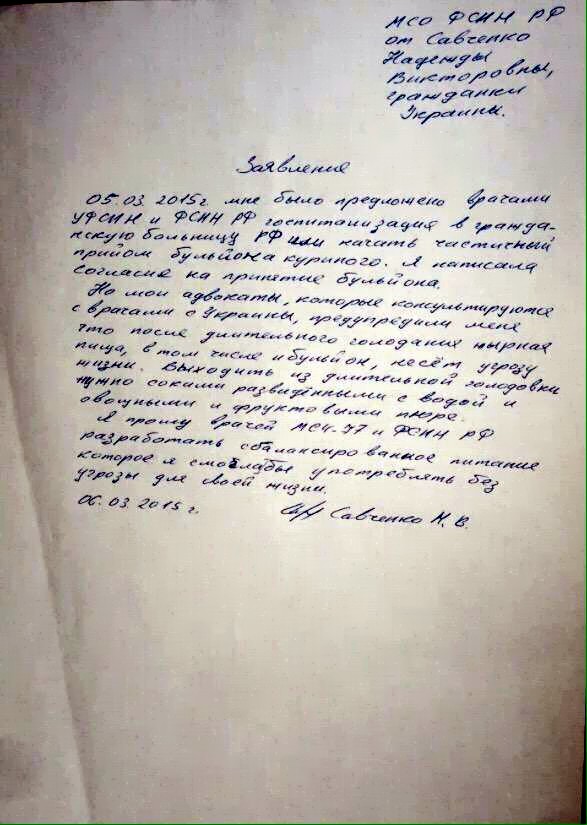 МСО ФСИН РФ
от Савченко
Надежды
Викторовны,
гражданки
Украины.
Заявление
05.03.2015г мне было предложено врачами
УФСИН и ФСИН РФ госпитализация в гражда-
нскую больницу РФ или начать частичный
прийом бульйона куриного. Я написала
согласие на принятие бульйона.
Но мои адвокаты, которые консультируются
с врачами с Украины, предупредили меня
что после длительного голодания жирная
пища, в том числе и бульйон, несёт угрозу
жизни. Выходить из длительной голодовки
нужно соками разведёнными с водой и
овощными и фруктовыми пюре.
Я прошу врачей МСЧ-77 и ФСИН РФ
разработать сбалансированное питание
которое я смогла бы употреблять без
угрозы для своей жизни.
06.03.2015г. Савченко Н.В.